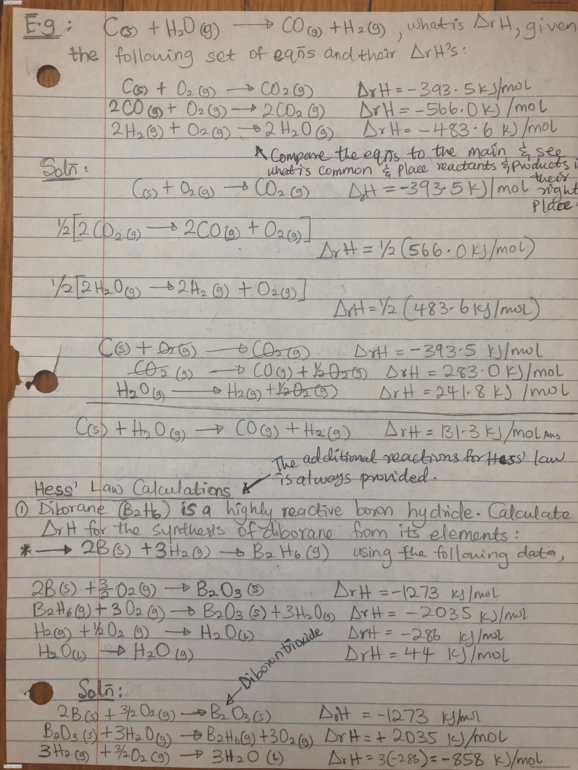 E.g: C(s) + H₂O(g) → CO(g) + H₂(g), what is ΔrH, given
the following set of eqn̄s and their ΔrH's:
C(s) + O₂(g) → CO₂(g) ΔrH = -393.5 kJ/mol
2CO(g) + O₂(g) → 2CO₂(g) ΔrH = -566.0 kJ/mol
2H₂(g) + O₂(g) → 2H₂O(g) ΔrH = -483.6 kJ/mol
↖ Compare the eqn̄s to the main & see
what is common & Place reactants & Products in
their
right
Place.
Soln̄:
C(s) + O₂(g) → CO₂(g) ΔrH = -393.5 kJ/mol
1/2[2CO₂(g) → 2CO(g) + O₂(g)]
ΔrH = 1/2(566.0 kJ/mol)
1/2[2H₂O(g) → 2H₂(g) + O₂(g)]
ΔrH = 1/2(483.6 kJ/mol)
C(s) + O₂(g) → CO₂(g) ΔrH = -393.5 kJ/mol
CO₂(g) → CO(g) + 1/2O₂(g) ΔrH = 283.0 kJ/mol
H₂O(g) → H₂(g) + 1/2O₂(g) ΔrH = 241.8 kJ/mol
C(s) + H₂O(g) → CO(g) + H₂(g) ΔrH = 131.3 kJ/mol Ans
The additional reactions for Hess' law
is always provided.
Hess' Law Calculations
① Diborane (B₂H₆) is a highly reactive boron hydride. Calculate
ΔrH for the synthesis of diborane from its elements:
* → 2B(s) + 3H₂(g) → B₂H₆(g) using the following data,
2B(s) + 3/2 O₂(g) → B₂O₃(s) ΔrH = -1273 kJ/mol
B₂H₆(g) + 3O₂(g) → B₂O₃(s) + 3H₂O(g) ΔrH = -2035 kJ/mol
H₂(g) + 1/2O₂(g) → H₂O(l) ΔrH = -286 kJ/mol
H₂O(l) → H₂O(g) ΔrH = 44 kJ/mol
Diboron trioxide
Soln̄:
2B(s) + 3/2O₂(g) → B₂O₃(s) ΔrH = -1273 kJ/mol
B₂O₃(s) + 3H₂O(g) → B₂H₆(g) + 3O₂(g) ΔrH = +2035 kJ/mol
3H₂(g) + 3/2O₂(g) → 3H₂O(l) ΔrH = 3(-286) = -858 kJ/mol